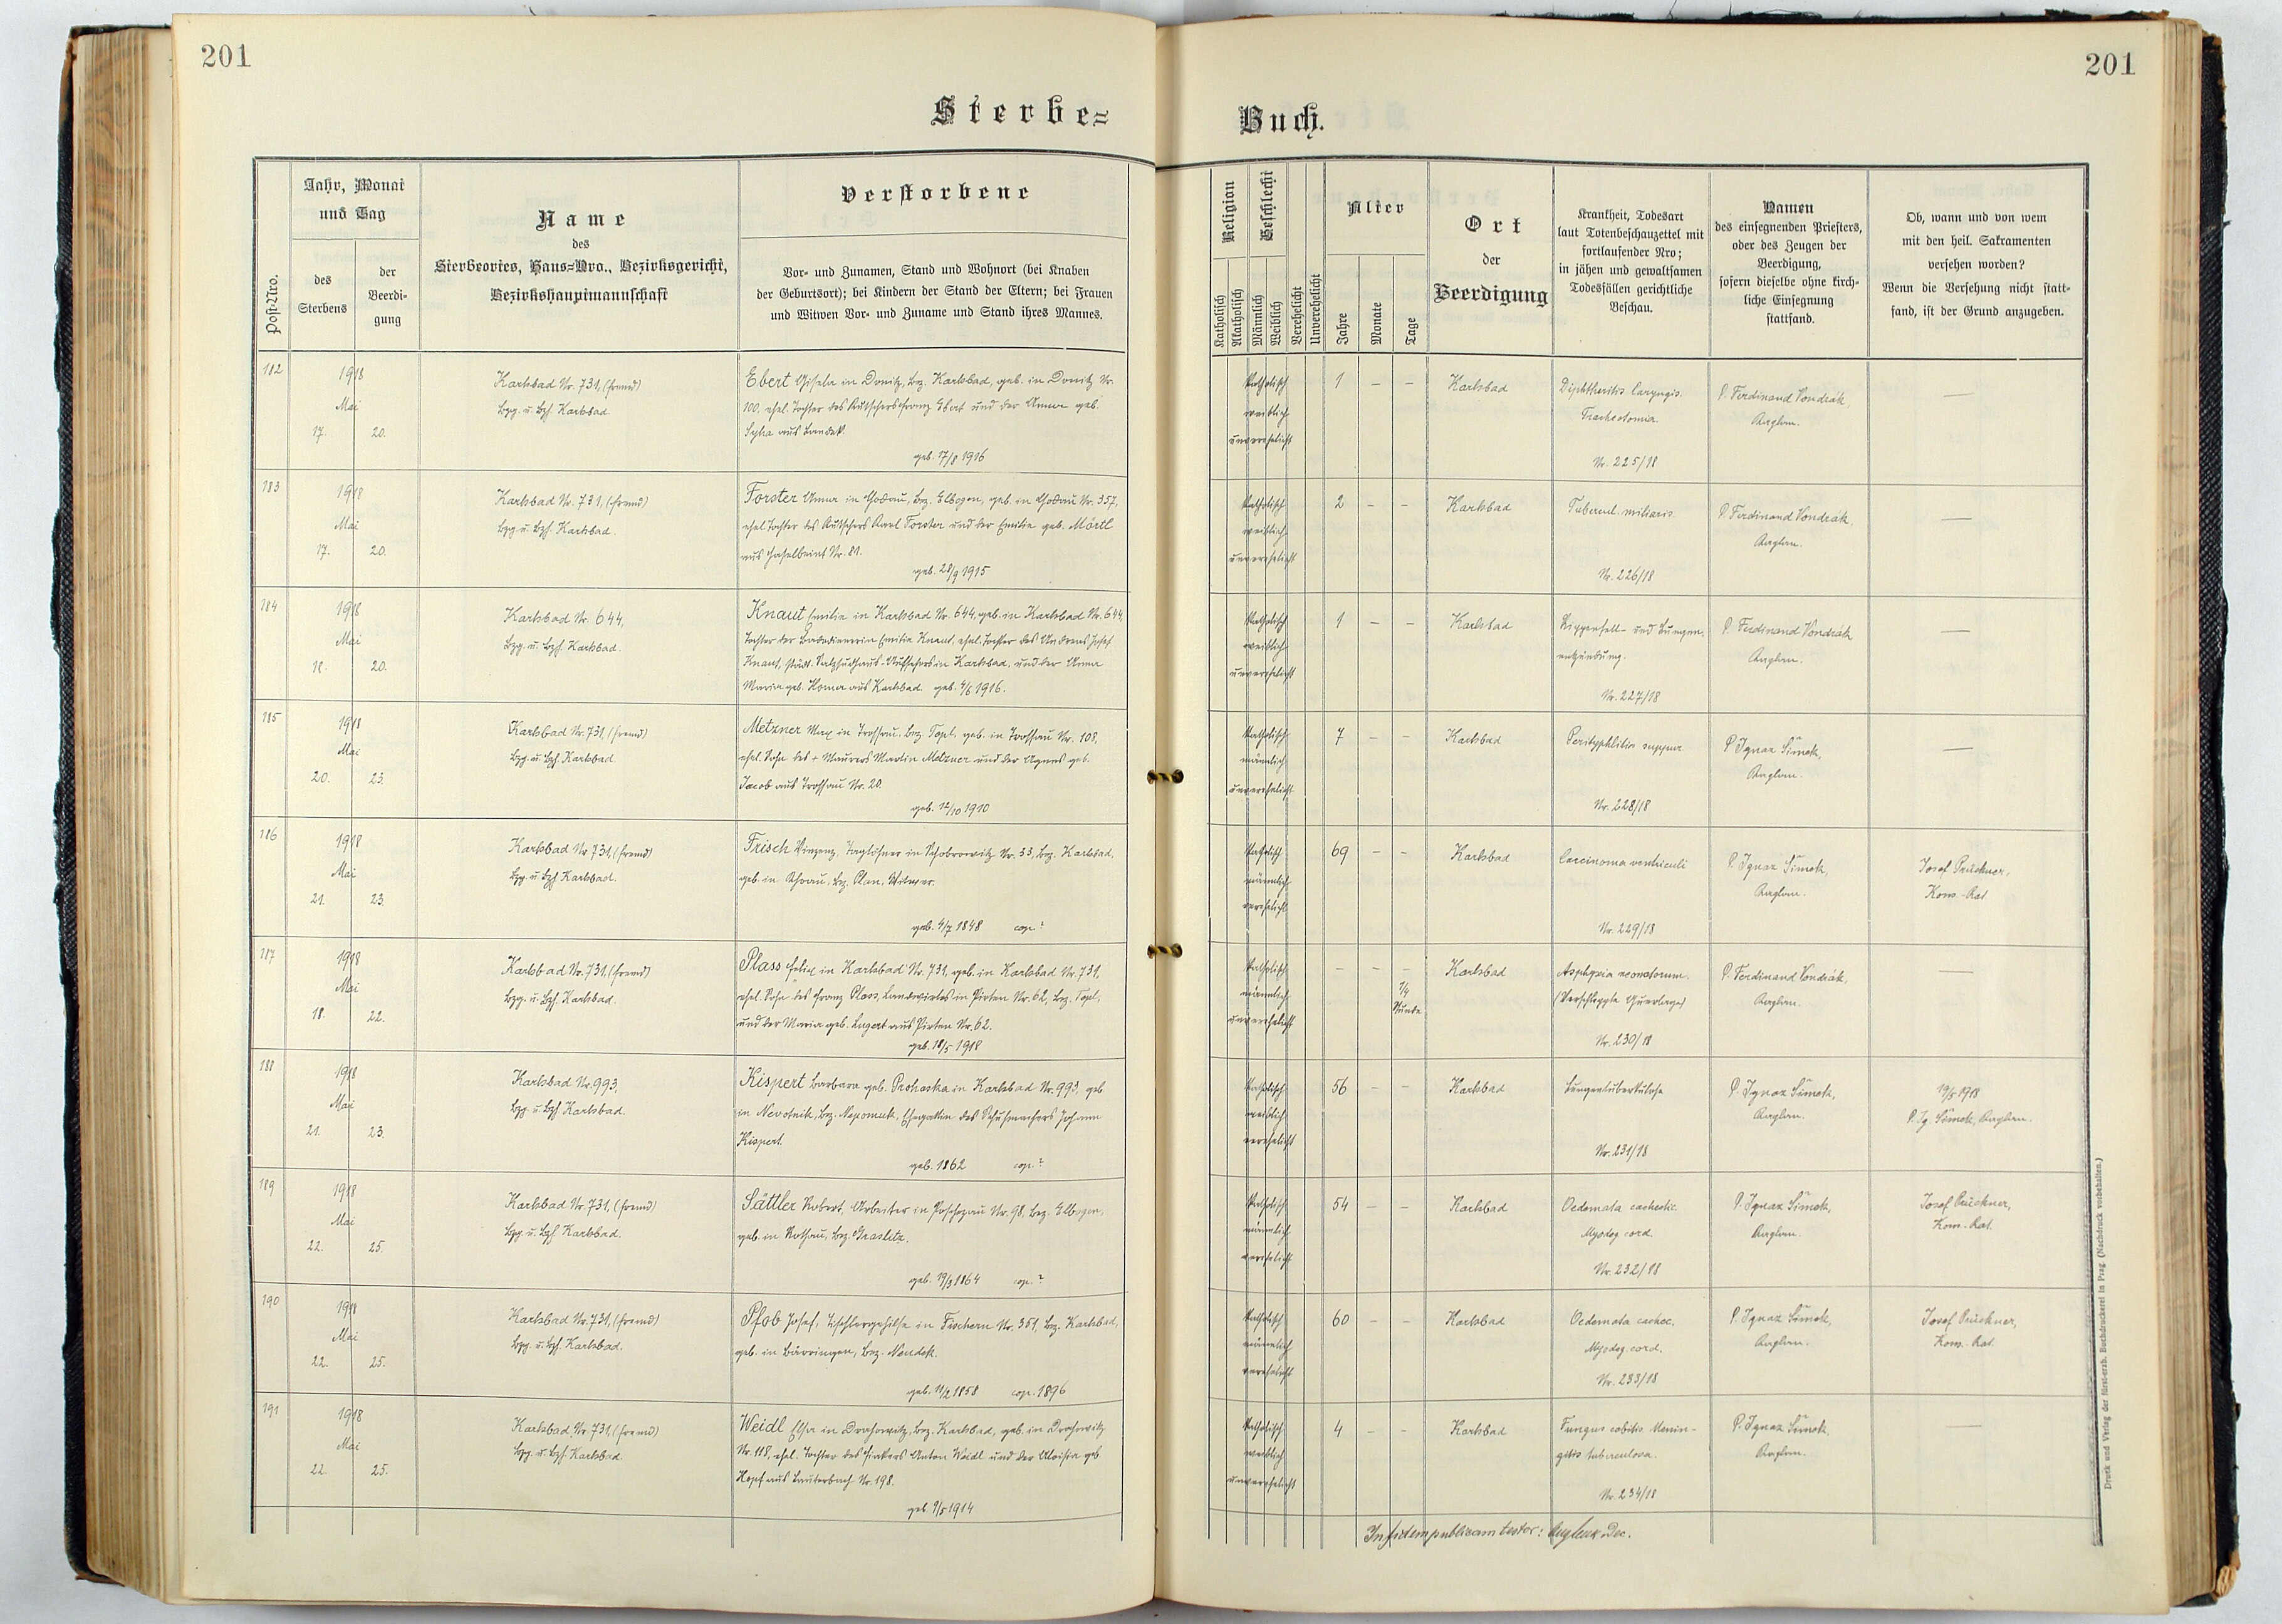 201
201
Sterbe=
Buch.
Post-Nro.
Jahr, Monat
und Tag
des
Sterbens
der
Beerdi-
gung
Name
des
Sterbeortes, Haus-Nro., Bezirksgericht,
Bezirkshauptmannschaft
Verstorbene
Vor- und Zunamen, Stand und Wohnort (bei Knaben
der Geburtsort); bei Kindern der Stand der Eltern; bei Frauen
und Witwen Vor- und Zuname und Stand ihres Mannes.
Religion
Katholisch
Akatholisch
Geschlecht
Männlich
Weiblich
Verehelicht
Unverehelicht
Alter
Jahre
Monate
Tage
Ort
der
Beerdigung
Krankheit, Todesart
laut Totenbeschauzettel mit
fortlaufender Nro;
in jähen und gewaltsamen
Todesfällen gerichtliche
Beschau.
Namen
des einsegnenden Priesters,
oder des Zeugen der
Beerdigung,
sofern dieselbe ohne kirch-
liche Einsegnung
stattfand.
Ob, wann und von wem
mit den heil. Sakramenten
versehen worden?
Wenn die Versehung nicht statt-
fand, ist der Grund anzugeben.
182
1918
Mai
17. 20.
Karlsbad Nr. 731, (fremd)
Bzg. u. Bzh. Karlsbad.
Ebert Gisela in Donitz, Bez. Karlsbad, geb. in Donitz Nr.
100, ehel. Tochter des Kutschers Franz Ebert und der Anna geb.
aus
geb. 17/8 1916
katholisch
weiblich
unverehelicht
1 – –
Karlsbad
Diphtheritis laryngis.
Tracheotomia.
Nr. 225/18
P. Ferdinand Vondrák,
Kaplan.
—
183
1918
Mai
17. 20.
Karlsbad Nr. 731, (fremd)
Bzg. u. Bzh. Karlsbad.
Forster Anna in Chodau, Bez. Elbogen, geb. in Chodau Nr. 357,
ehel. Tochter des Kutschers Karl Forster und der Emilie geb. Mörtl
aus Nr. 81.
geb. 28/9 1915
katholisch
weiblich
unverehelicht
2 – –
Karlsbad
Tubercul. miliaris.
Nr. 226/18
P. Ferdinand Vondrák,
Kaplan.
—
184
1918
Mai
18. 20.
Karlsbad Nr. 644,
Bzg. u. Bzh. Karlsbad.
Knaut Emilie in Karlsbad Nr. 644, geb. in Karlsbad Nr. 644,
Tochter der Badedienerin Emilie Knaut, ehel. Tochter des Andreas Josef
Knaut, städt. Salzsudhaus-Aufsehers in Karlsbad, und der Anna
Maria geb. aus Karlsbad. geb. 4/6 1916.
katholisch
weiblich
unverehelicht
1 – –
Karlsbad
Rippenfell- und Lungen-
entzündung.
Nr. 227/18
P. Ferdinand Vondrák
Kaplan.
—
185
1918
Mai
20. 23.
Karlsbad Nr. 731, (fremd)
Bzg. u. Bzh. Karlsbad
Metzner Max in Trossau, Bez. Tepl, geb. in Trossau Nr. 108,
ehel. Sohn des + Maurers Martin Metzner und der Agnes geb.
Jacob aus Trossau Nr. 20.
geb. 12/10 1910
katholisch
männlich
unverehelicht
7 – –
Karlsbad
Perityphlitis suppur
Nr. 228/18
P. Ignaz Šimek,
Kaplan.
—
186
1918
Mai
21. 23.
Karlsbad Nr. 731, (fremd)
Bzg. u. Bzh. Karlsbad.
Frisch Vinzenz, Taglöhner in Schobrowitz Nr. 33, Bez. Karlsbad,
geb. in Bez. Plan, Witwer.
geb. 4/7 1848 cop. ?
katholisch
männlich
verehelicht
69 – –
Karlsbad
Carcinoma ventriculi
Nr. 229/18
P. Ignaz Šimek,
Kaplan.
Josef Pruckner,
Kons.-Rat.
187
1918
Mai
18. 22.
Karlsbad Nr. 731, (fremd)
Bzg. u. Bzh. Karlsbad.
Plass Felix in Karlsbad Nr. 731, geb. in Karlsbad Nr. 731,
ehel. Sohn des Franz Plass, Landwirtes in Pirten Nr. 62, Bez. Tepl,
und der Maria geb. Lugert aus Pirten Nr. 62.
geb. 18/5 1918
katholisch
männlich
unverehelicht
– – –
1/4
Stunde
Karlsbad
Asphyxia neonatorum.
(Verschleppte Querlage)
Nr. 230/18
P. Ferdinand Vondrák,
Kaplan.
—
188
1918
Mai
21. 23.
Karlsbad Nr. 993,
Bzg. u. Bzh. Karlsbad.
Kispert Barbara geb. Prohaska in Karlsbad Nr. 993, geb.
in Nevotnik, Bez. Nepomuk, Ehegattin des Schuhmachers Johann
Kispert.
geb. 1862 cop. ?
katholisch
weiblich
verehelicht
56 – –
Karlsbad
Lungentuberkulose
Nr. 231/18
P. Ignaz Šimek,
Kaplan.
19/5 1918
P. Ig. Šimek, Kaplan.
189
1918
Mai
22. 25.
Karlsbad Nr. 731, (fremd)
Bzg. u. Bzh. Karlsbad.
Sättler Robert, Arbeiter in Poschezau Nr. 98, Bez. Elbogen,
geb. in Rothau, Bez. Graslitz.
geb. 19/3 1864 cop. ?
katholisch
männlich
verehelicht
54 – –
Karlsbad
Oedemata cachectic.
Myodeg. cord.
Nr. 232/18
P. Ignaz Šimek,
Kaplan.
Josef Pruckner,
Kons.-Rat.
190
1918
Mai
22. 25.
Karlsbad Nr. 731, (fremd)
Bzg. u. Bzh. Karlsbad.
Pfob Josef, Tischlergehilfe in Fischern Nr. 351, Bez. Karlsbad,
geb. in Bärringen, Bez. Neudek.
geb. 11/2 1858 cop. 1896
katholisch
männlich
verehelicht
60 – –
Karlsbad
Oedemata cachec.
Myodeg. cord.
Nr. 233/18
P. Ignaz Šimek,
Kaplan.
Josef Pruckner,
Kons.-Rat.
191
1918
Mai
22. 25.
Karlsbad, Nr. 731, (fremd)
Bzg. u. Bzh. Karlsbad.
Weidl Elsa in Drahowitz, Bez. Karlsbad, geb. in Drahowitz
Nr. 118, ehel. Tochter des Fiakers Anton Weidl und der Aloisia geb.
Hopf aus Lauterbach Nr. 198.
geb. 9/5 1914
katholisch
weiblich
unverehelicht
4 – –
Karlsbad
Fungus cubitis. Menin-
gitis tuberculosa.
Nr. 234/18
P. Ignaz Šimek,
Kaplan.
—
In fidem publicam testor:
Druck und Verlag der fürst-erzb. Buchdruckerei in Prag (Nachdruck vorbehalten.)